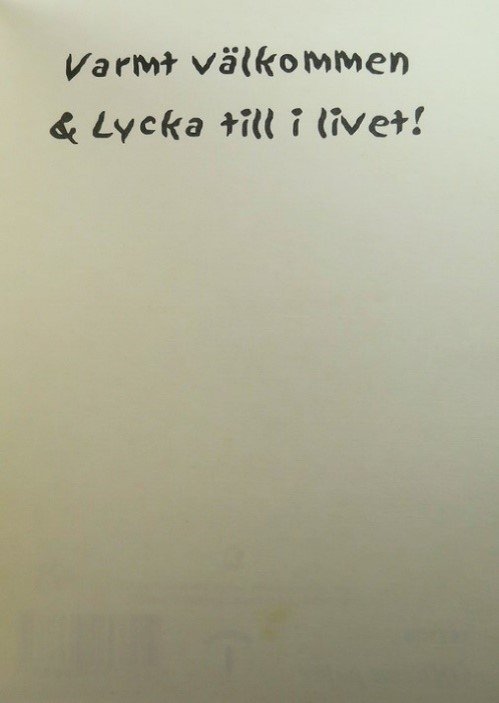 Varmt välkommen
& Lycka till i livet!